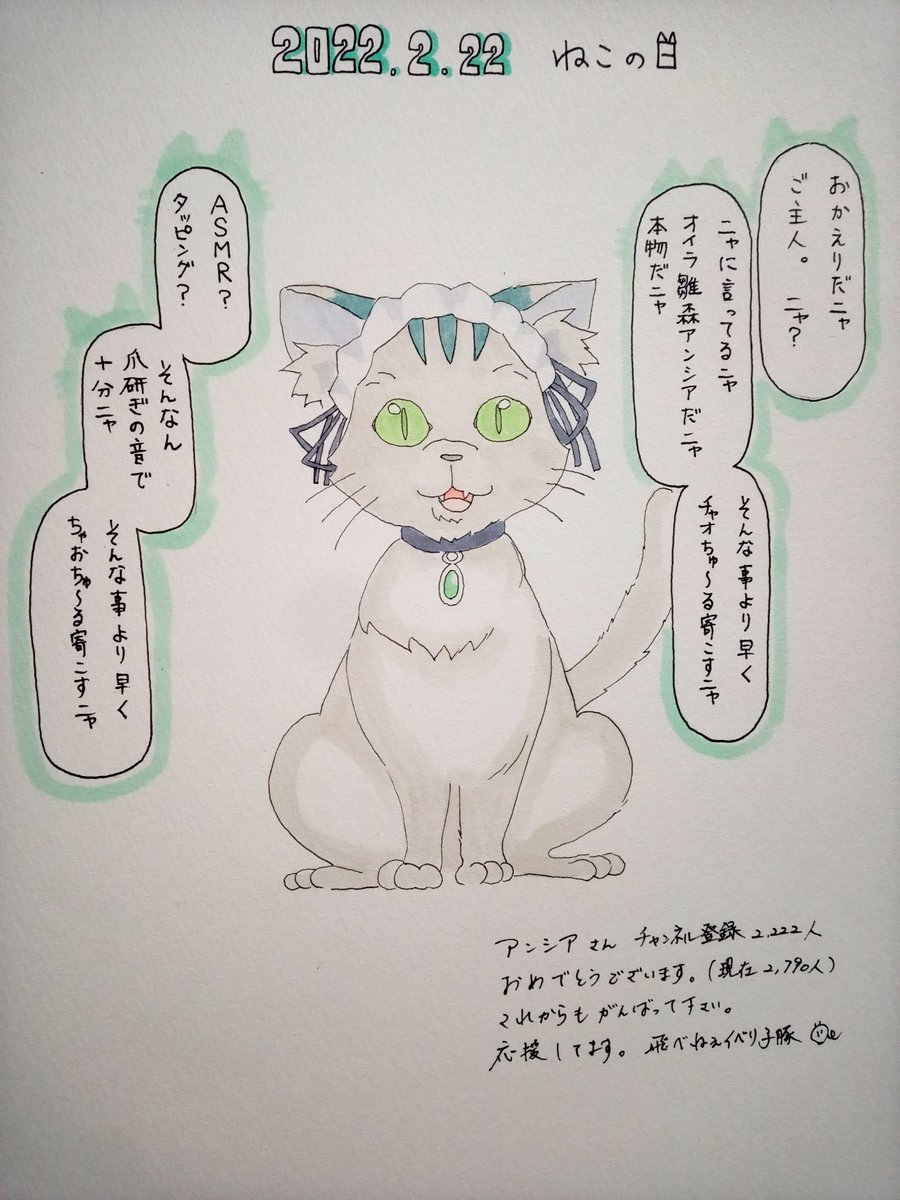 2022.2.22 ねこの日
おかえりだニャ
ご主人。 ニャ?
ニャに言ってるニャ
オイラ雛森アンシアだニャ
本物だニャ
そんな事より早く
チャオちゅ～る寄こすニャ
ASMR?
タッピング?
そんなん
爪研ぎの音で
十分ニャ
そんな事より早く
ちゃおちゅ～る寄こすニャ
アンシアさん チャンネル登録2,222人
おめでとうございます。(現在2,790人)
これからもがんばって下さい。
応援してます。 飛べねえイベリ子豚